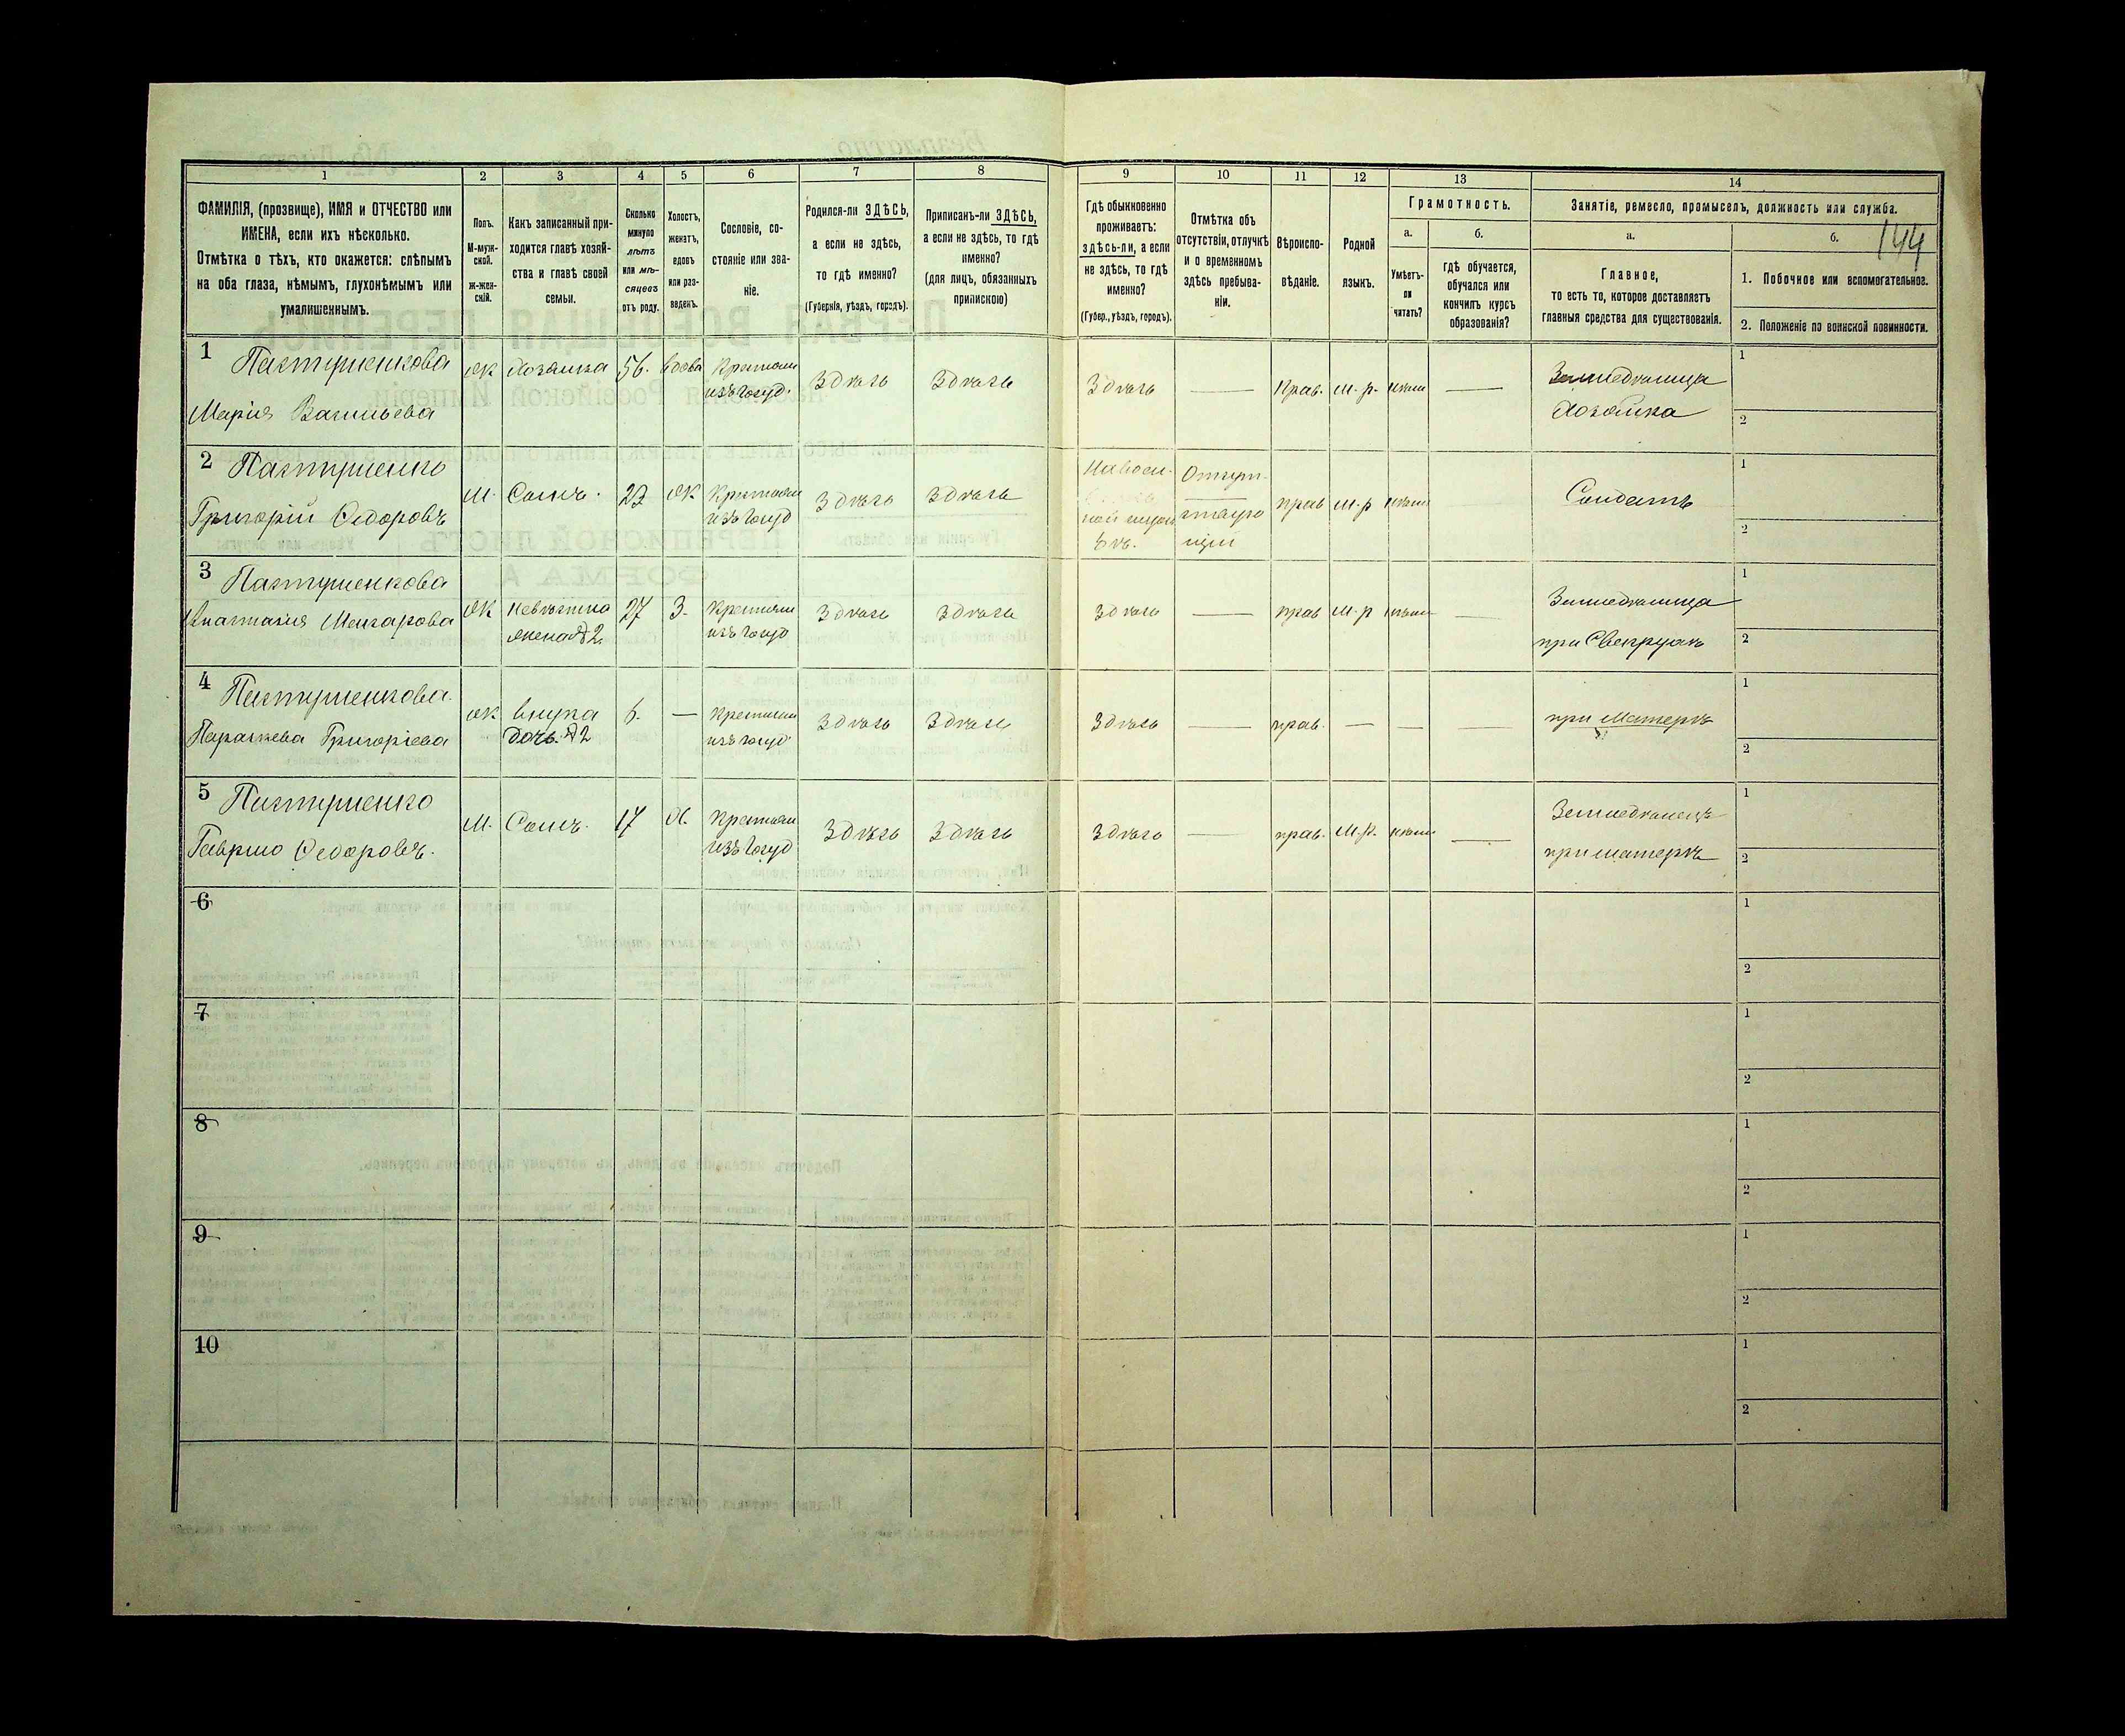 144
1
2
3
4
5
6
7
8
9
10
11
12
13
14
ФАМИЛІЯ, (прозвище), ИМЯ и ОТЧЕСТВО или
ИМЕНА, если ихъ нѣсколько.
Отмѣтка о тѣхъ, кто окажется: слѣпымъ
на оба глаза, нѣмымъ, глухонѣмымъ или
умалишеннымъ.
Полъ.
М-муж-
ской.
ж-жен-
скій.
Какъ записанный при-
ходится главѣ хозяй-
ства и главѣ своей
семьи.
Сколько
минуло
лѣтъ
или мѣ-
сяцевъ
отъ роду.
Холостъ,
женатъ,
вдовъ
или раз-
веденъ.
Сословіе, со-
стояніе или зва-
ніе.
Родился-ли ЗДѢСЬ,
а если не здѣсь,
то гдѣ именно?
(Губернія, уѣздъ, городъ).
Приписанъ-ли ЗДѢСЬ,
а если не здѣсь, то гдѣ
именно?
(для лицъ, обязанныхъ
припискою)
Гдѣ обыкновенно
проживаетъ:
здѣсь-ли, а если
не здѣсь, то гдѣ
именно?
(Губер., уѣздъ, городъ).
Отмѣтка объ
отсутствіи, отлучкѣ
и о временномъ
здѣсь пребыва-
ніи.
Вѣроиспо-
вѣданіе.
Родной
языкъ.
Грамотность.
а.
Умѣетъ-
ли
читать?
б.
гдѣ обучается,
обучался или
кончилъ курсъ
образованія?
Занятіе, ремесло, промыселъ, должность или служба.
а.
Главное,
то есть то, которое доставляетъ
главныя средства для существованія.
б.
1. Побочное или вспомогательное.
2. Положеніе по воинской повинности.
1 Пастушенкова
Марія Васильева
ж
Хозяйка
56.
вдова
Крестьян
изъ госуд.
Здѣсь
Здѣсь
Здѣсь
Прав.
м.р.
Земледѣлица
Хозяйка
1
2
2 Пастушенко
Григорій Федоровъ
М.
Сынъ.
27
ж
Крестьян
изъ госуд
Здѣсь
Здѣсь
прав
м.р
Солдатъ
1
2
3 Пастушенкова
Анастасия
ж
Невѣстка
жена №2
27
З.
Крестьян
изъ госуд
Здѣсь
Здѣсь
Здѣсь
прав
м.р
Земледѣлица
при Свекрухѣ
1
2
4 Пастушенкова
Параскева Григоріева
ж
внучка
дочь №2
6.
Крестьян
изъ госуд.
Здѣсь
Здѣсь
Здѣсь
прав.
при Матерѣ
1
2
5 Пастушенко
Гаврило Федоровъ.
М.
Сынъ.
17
Х.
Крестьян
изъ госуд
Здѣсь
Здѣсь
Здѣсь
прав.
м.р.
Земледѣлецъ
при матерѣ
1
2
6
1
2
7
1
2
8
1
2
9
1
2
10
1
2